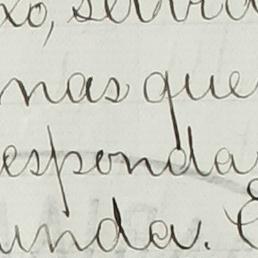 xo, servi
mas que
esponda
unda.